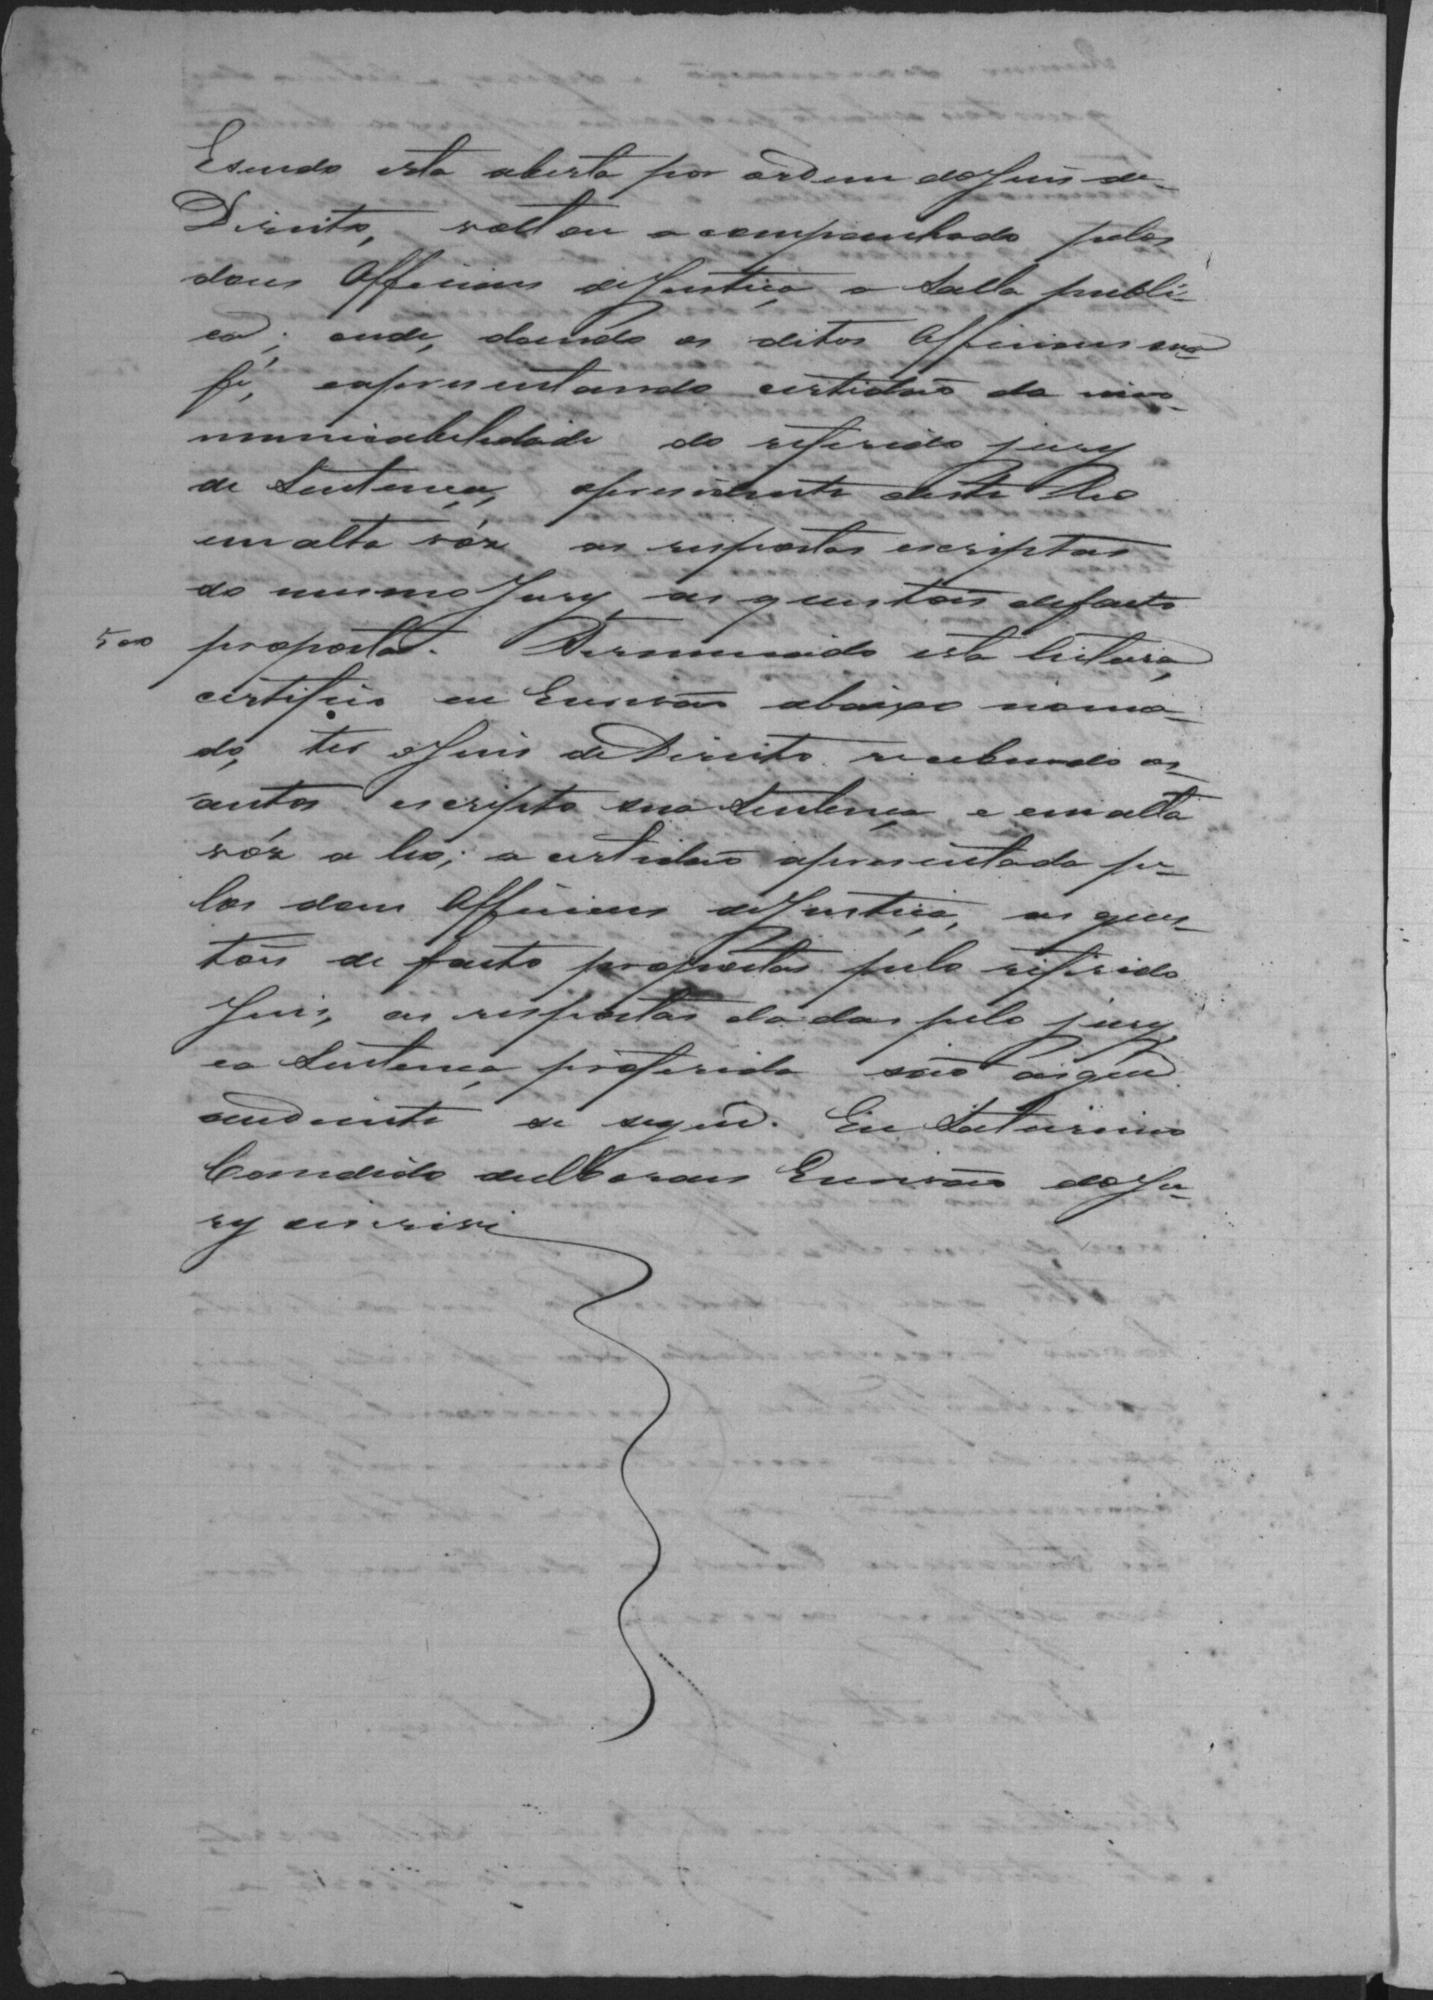 E sendo esta aberta por ordem do Juis de
Direito, voltou acompanhado pelos
dous Officiaes de Justiça a Salla publi-
ca; onde, dando os ditos Officiaes sua
fé, e apresentando certidão da inco-
mmunicabilidade do referido jury
de Sentença, o presidente deste leo
em alta vóz as respostas escriptas
do mesmo Jury as questões de facto
500 propostas. Terminada esta leitura,
certifico eu Escrivão abaixo nomea-
do, ter o Juis de Direito recebendo os
autos escripto sua Sentença e em alta
vóz a leo; a certidão apresentada pe-
los dous Officiaes de Justiça, as ques-
tões de facto propostas pelo referido
Juis, as respostas dadas pelo jury
e a Sentença proferida são as que
se segue. Eu Saturnino
Candido de Moraes Escrivão do Ju-
ry escrivi